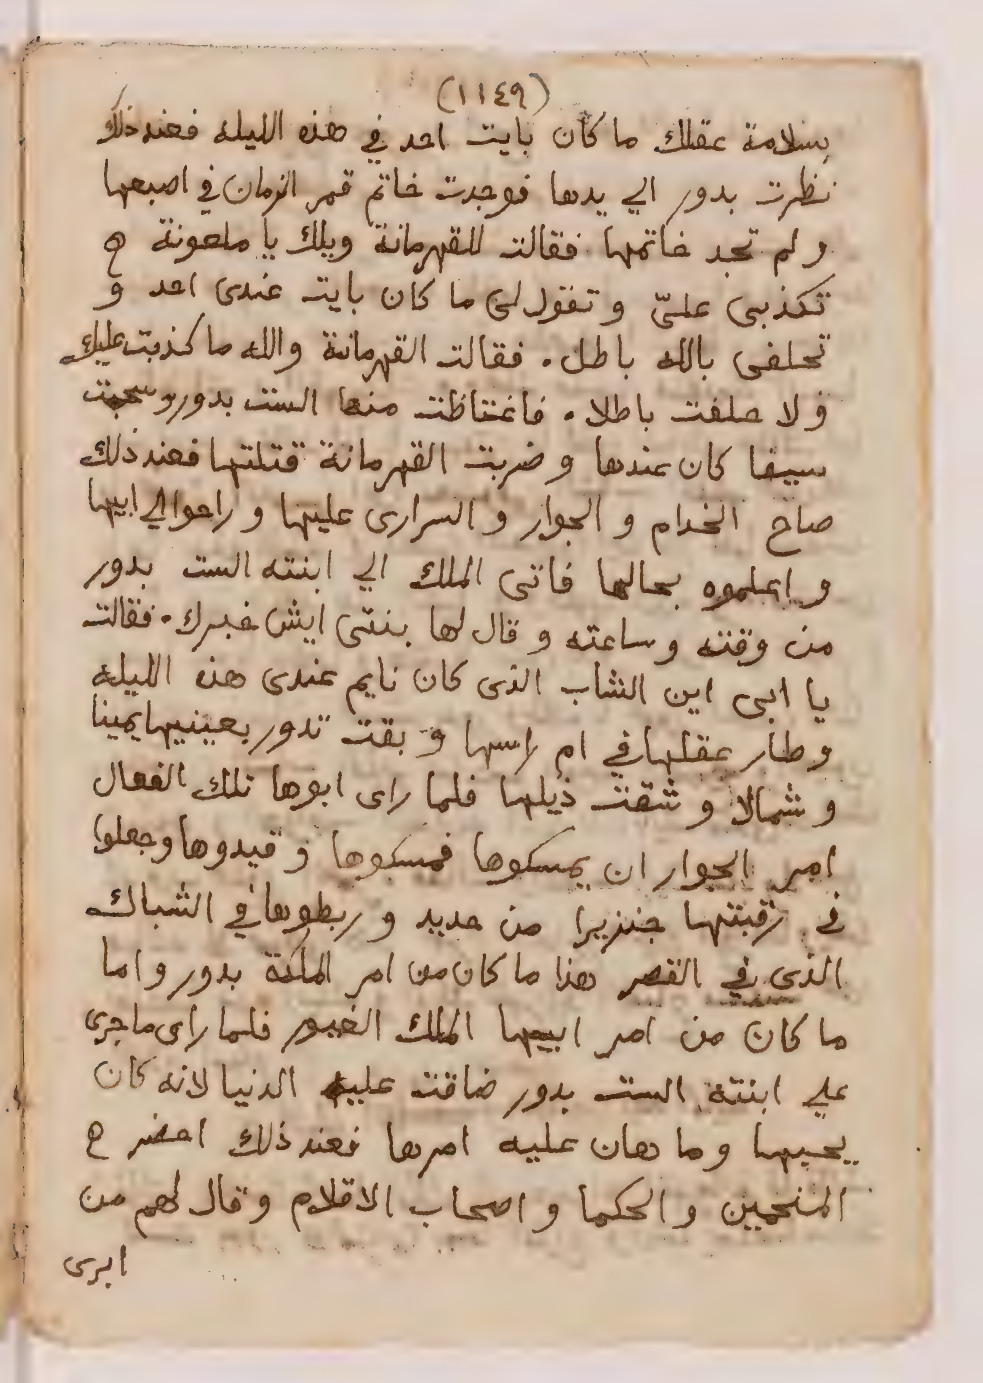 (١١٤٩)
بسلامة عقلك ما كان بايت احد في هذه الليله فعند ذلك
نظرت بدور الي يدها فوجدت خاتم قمر الزمان في اصبعها
ولم تجد خاتمها فقالت للقهرمانة ويلك يا ملعونة ح
تكذبى علىّ وتقول لى ما كان بايت عندى احد و
تحلفى بالله باطل . فقالت القهرمانة والله ما كذبت عليك
ولا حلفت باطلا . فاغتاظت منها الست بدور وسحبت
سيفا كان عندها وضربت القهرمانة قتلتها فعند ذلك
صاح الخدام و الجوار و السرارى عليها و راحوا الي ابيها
و اعلموه بحالها فاتى الملك الي ابنته الست بدور
من وقته وساعته وقال لها بنتى ايش خبرك . فقالت
يا ابى اين الشاب الذى كان نايم عندى هذه الليله
وطار عقلها في ام راسها وبقت تدور بعينيها يمينا
و شمالا و شقت ذيلها فلما راى ابوها تلك الفعال
امر الجوار ان يمسكوها فمسكوها وقيدوها وجعلوا
في رقبتها جنزيرا من حديد و ربطوها في الشباك
الذى في القصر هذا ما كان من امر الملكة بدور واما
ما كان من امر ابيها الملك الغيور فلما راى ما جرى
علي ابنته الست بدور ضاقت عليه الدنيا لانه كان
يحبها وما هان عليه امرها فعند ذلك احضر ح
المنجمين والحكما و اصحاب الاقلام وقال لهم من
ابرى